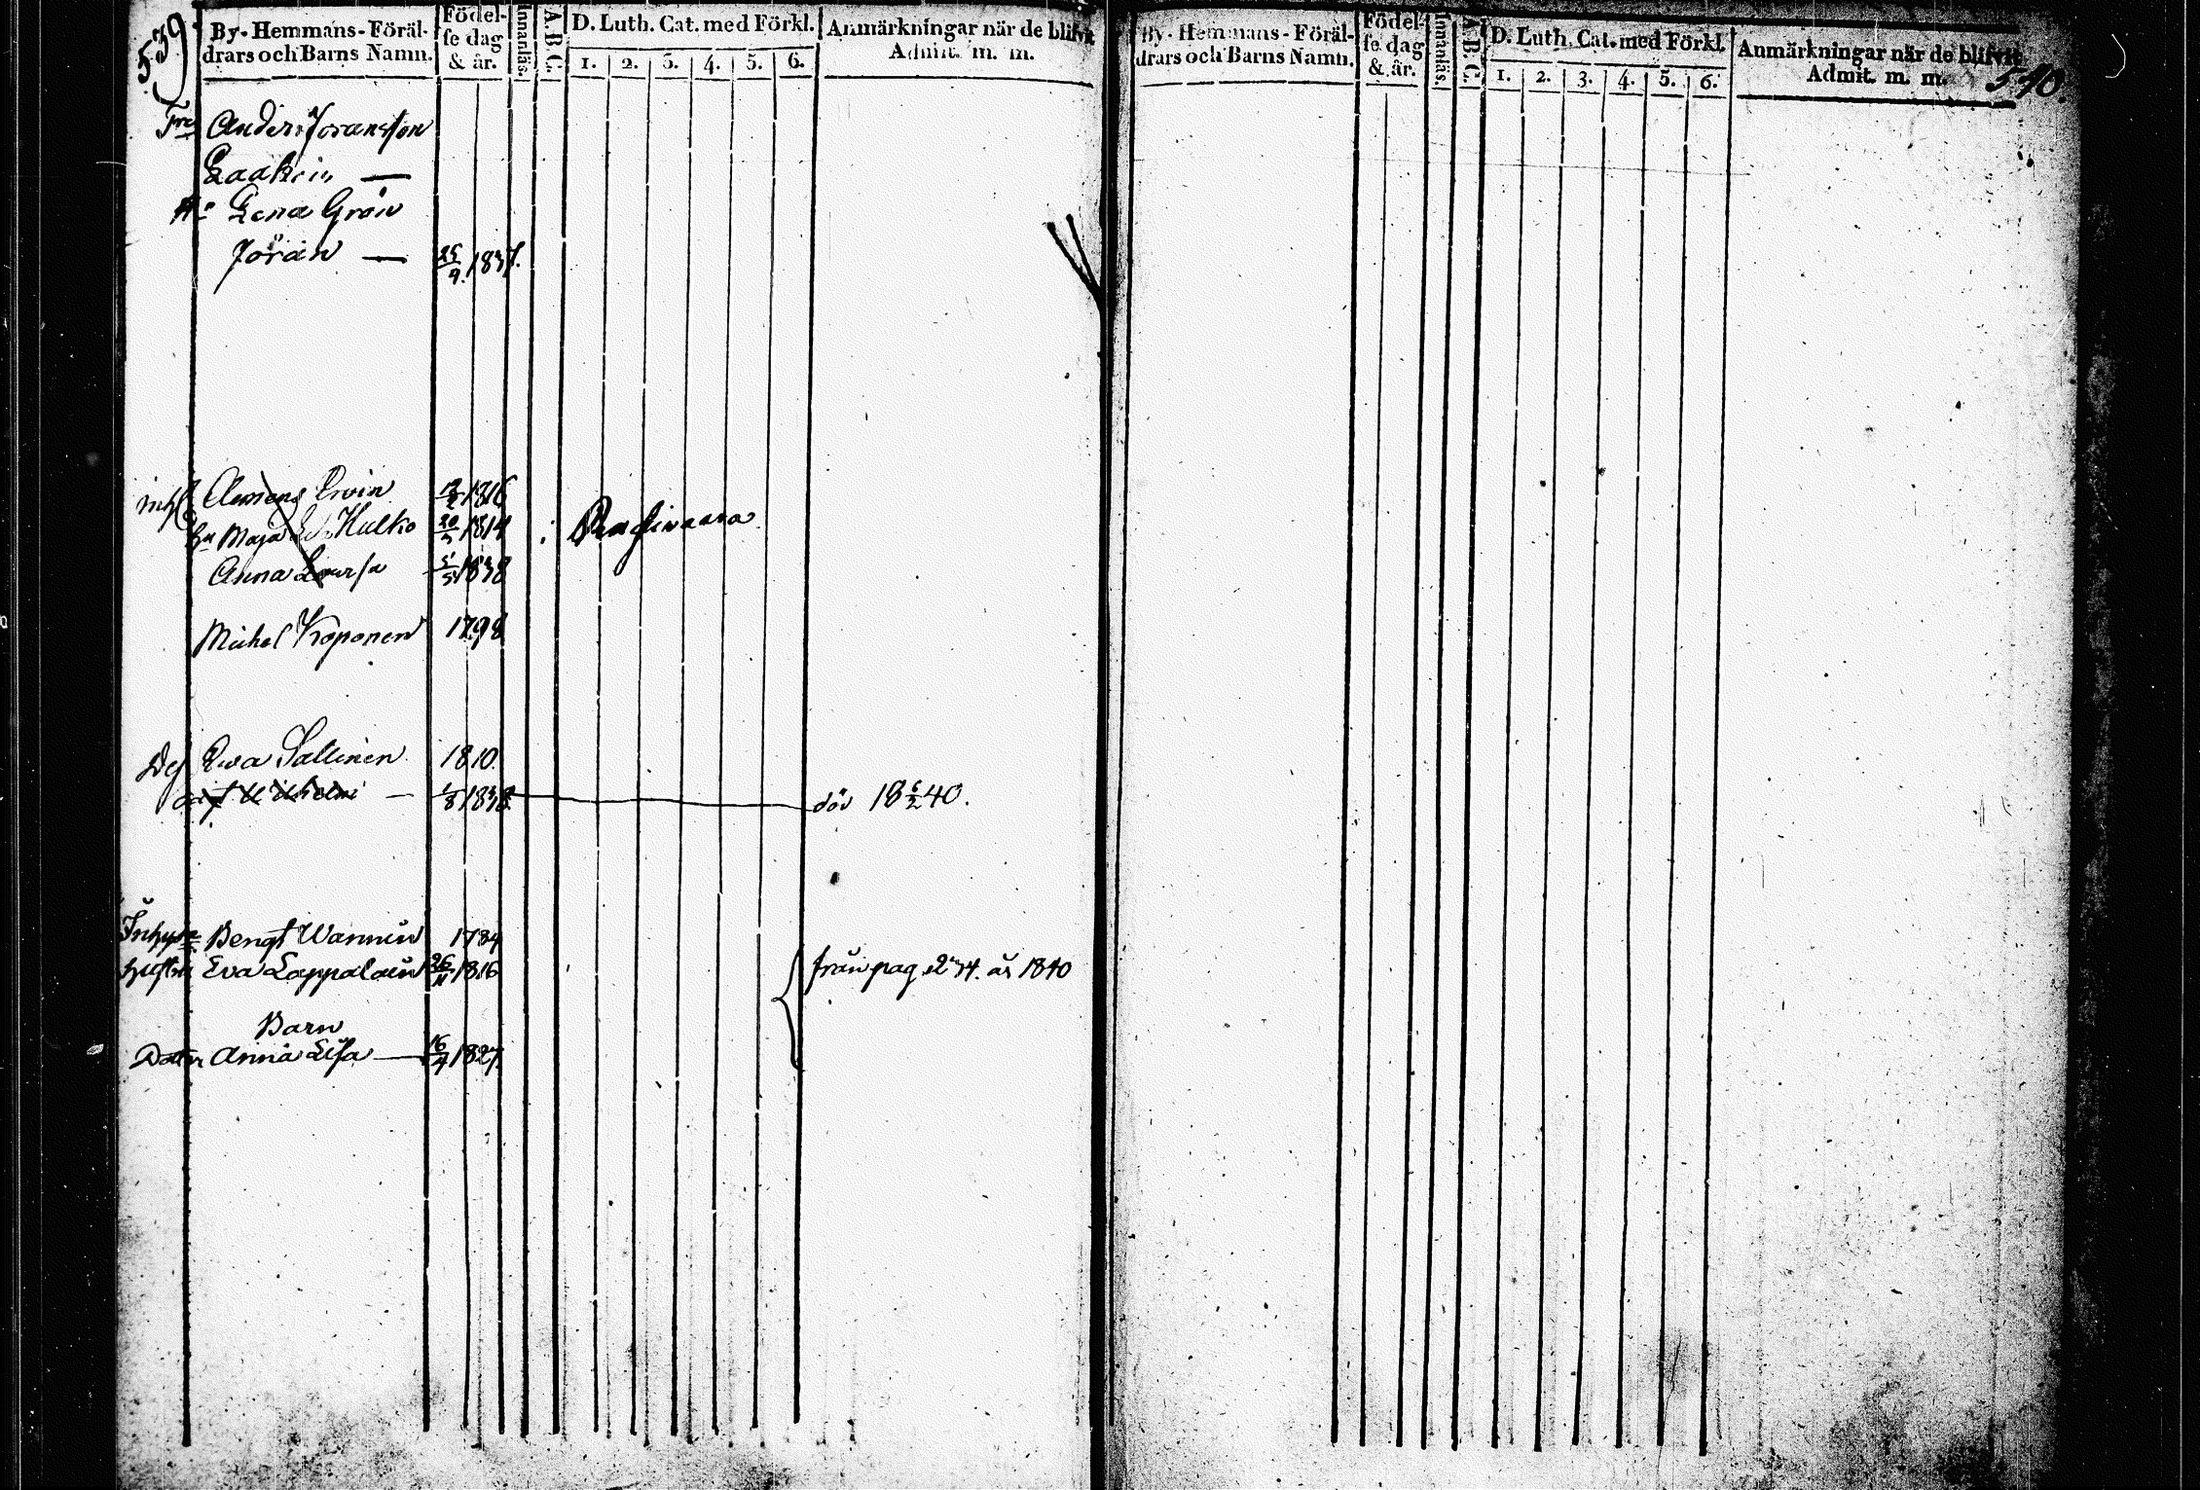 539
By-Hemmans-Föräl-
drars och Barns Namn.
Födel-
se dag
& är.
Innanläs.
A.B.C.
D. Luth. Cat. med Förkl.
1. 2. 3. 4. 5. 6.
Anmärkningar när de blifvit
Admit. m. m.
Anders Joransson
Lena Grön
Jöran — 25/9 1837.
Clemens Ervin 1816
Hu Maja Hulko 20/ 1814
Anna 1838
Michel Koponen 1798
Ewa Sallinen 1810.
1838 döv 18 40.
Inhyse Bengt Wanninen 1784
Hustru Eva Lappalain 26/11 1816 från pag 234. år 1840
Barn
Dotter Anna Lisa — 16/4 1827
By-Hemmans-Föräl-
drars och Barns Namn.
Födel-
se dag
& är.
Innanläs.
A.B.C.
D. Luth. Cat. med Förkl.
1. 2. 3. 4. 5. 6.
Anmärkningar när de blifvit
Admit. m. m.
540.